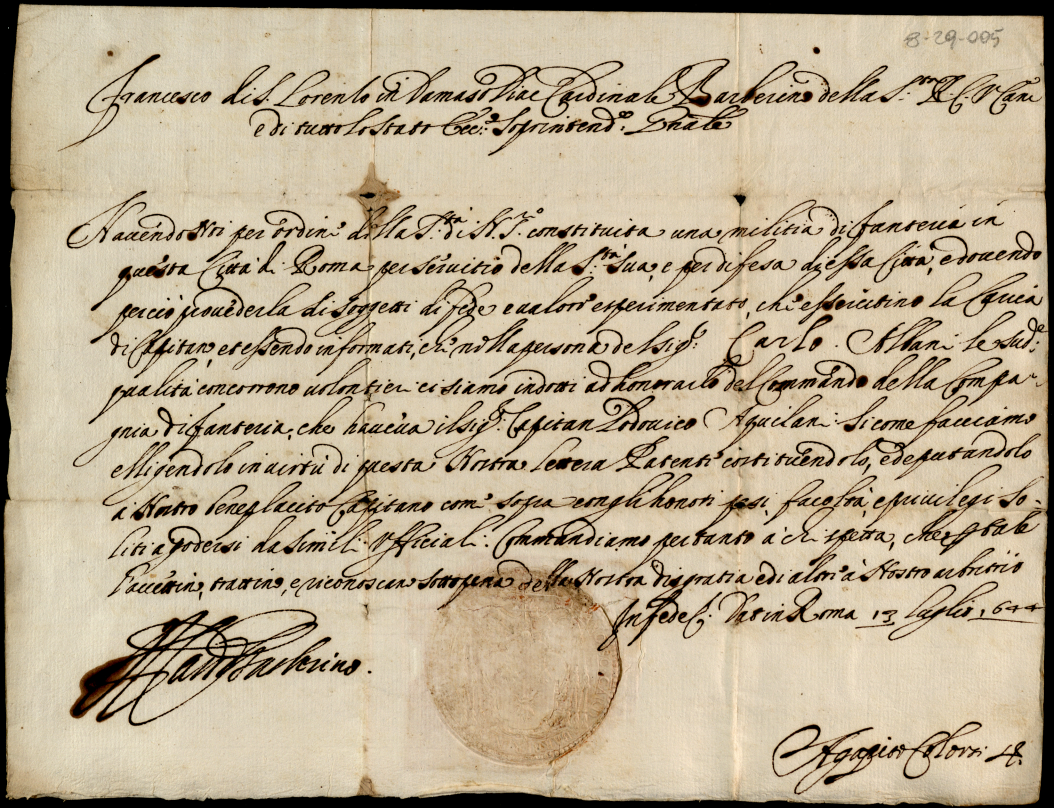 8-29-005
Francesco di S. Lorenzo in Damaso Diac Cardinale Barberino della S.ta R. C. V Canc
e di tutto lo stato Ecc.o Soprintend.e Gnale
Havendo Noi per ordine della S.tà di N. S.re constituita una militia di fanteria in
questa Città di Roma per servitio della S.tà Sua, e per difesa di essa Città, e dovendo
perciò provederla di soggetti di fede e valore esperimentato, che essercitino la Carica
di Capitan, et essendo informati, che nella persona del sig.r Carlo Albani le sud.e
qualità concorrono volontieri ci siamo indotti ad honorarlo del Commando della Compa-
gnia di fanteria, che haveva il sig.r Capitan Lodovico Aquilani sicome facciamo
elligendolo in virtù di questa Nostra lettera Patente costituendolo, e deputandolo
a Nostro beneplacito Capitano come sopra con gli honori pesi, facoltà, e privilegi so-
liti a godersi da simili Ufficiali. Commandiamo pertanto à chi spetta, che p tale
l'accettino, trattino, e riconoscan sotto pena della Nostra disgratia ed altri à Nostro arbitrio
In fede &. Dat in Roma 13 luglio 1644
Card Barberino.
Agapito